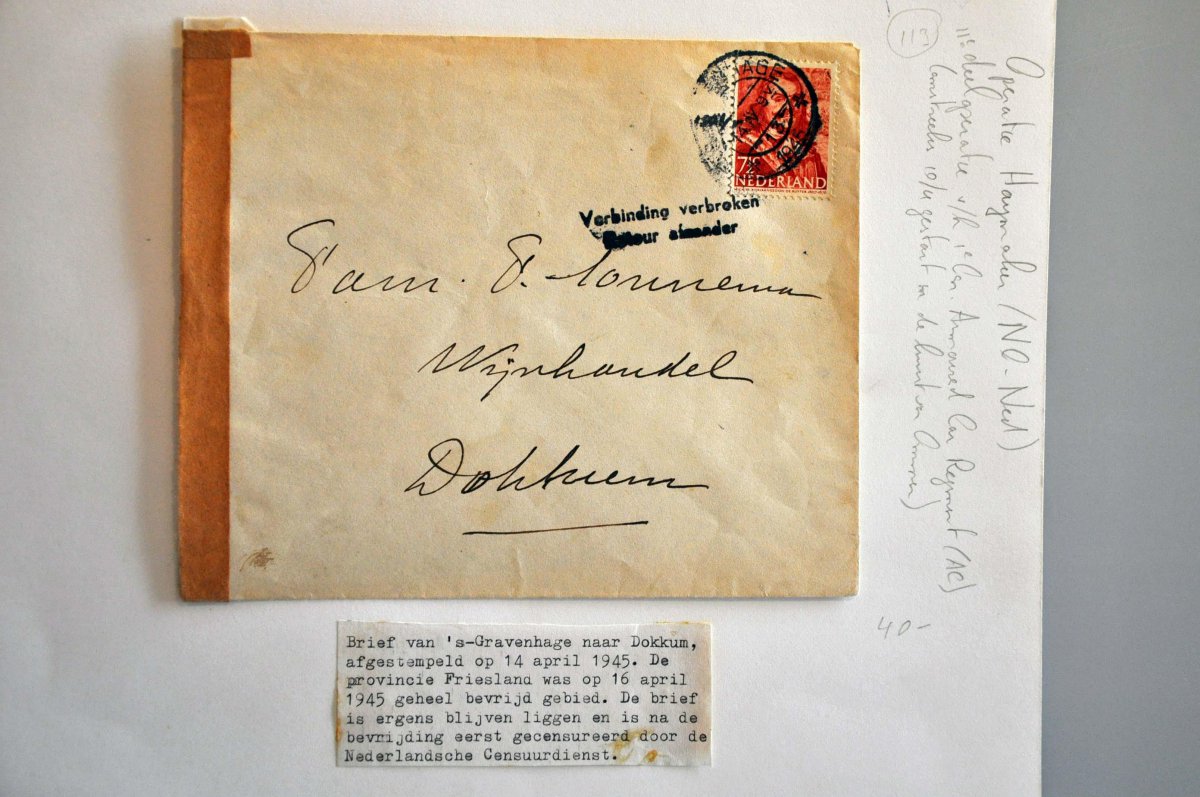 'S-GRAVENHAGE
1945
7½ c
NEDERLAND
Verbinding verbroken
Retour afzender
Fam. P. Tonnema
Wijnhandel
Dokkum
Brief van 's-Gravenhage naar Dokkum,
afgestempeld op 14 april 1945. De
provincie Friesland was op 16 april
1945 geheel bevrijd gebied. De brief
is ergens blijven liggen en is na de
bevrijding eerst gecensureerd door de
Nederlandsche Censuurdienst.
Operatie Haymaker (NO-Ned)
deeloperatie v/h 1e Armoured Car Regiment (AC)
10/4 gestart in de buurt van
40-